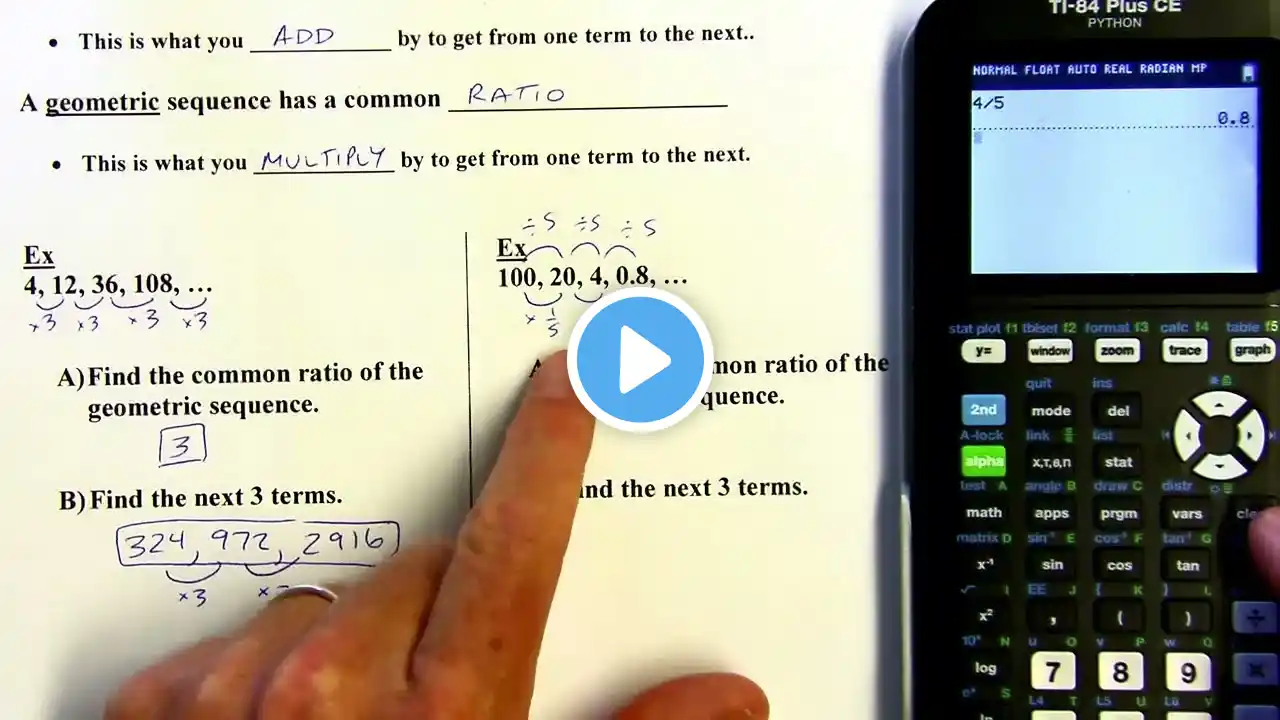 • This is what you ADD by to get from one term to the next..
A geometric sequence has a common RATIO
• This is what you MULTIPLY by to get from one term to the next.
Ex
4, 12, 36, 108, ...
×3 ×3 ×3 ×3
A) Find the common ratio of the
geometric sequence.
3
B) Find the next 3 terms.
324, 972, 2916
×3
÷5 ÷5 ÷5
Ex
100, 20, 4, 0.8, ...
× 1/5
ratio of the
nd the next 3 terms.
TI-84 Plus CE
PYTHON
NORMAL FLOAT AUTO REAL RADIAN MP
4/5
0.8
stat plot f1 tblset f2 format f3 calc f4 table f5
y= window zoom trace graph
quit ins
2nd mode del
A-lock link list
alpha X,T,θ,n stat
test A angle B draw C distr
math apps prgm vars
matrix D sin⁻¹ E cos⁻¹ F tan⁻¹ G
x⁻¹ sin cos tan
√ I EE J { K } L
x² , ( ) ÷
10ˣ N u O v P w Q
log 7 8 9 ×
eˣ S L4 T L5 U L6 V
ln